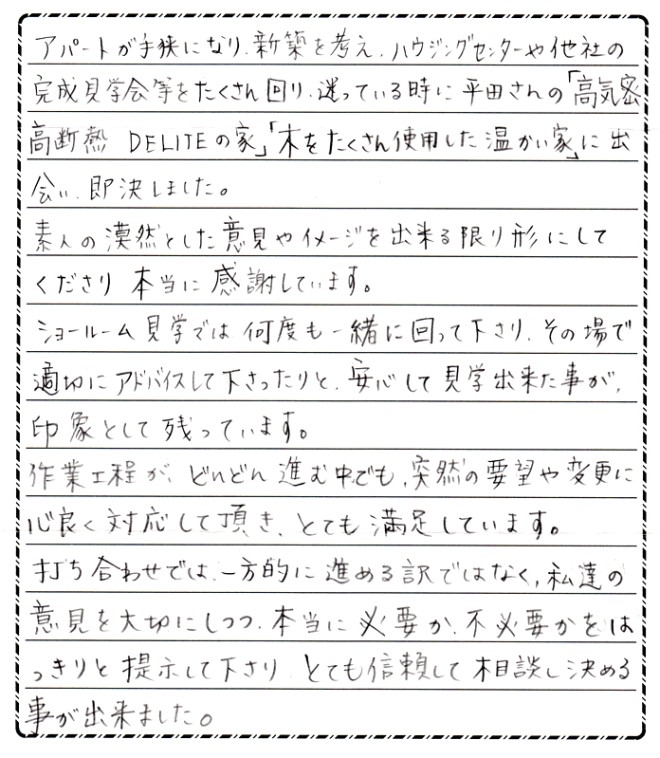 アパートが手狭になり、新築を考え、ハウジングセンターや他社の
完成見学会等をたくさん回り、迷っている時に平田さんの「高気密
高断熱 DELITEの家」「木をたくさん使用した温かい家」に出
会い、即決しました。
素人の漠然とした意見やイメージを出来る限り形にして
くださり本当に感謝しています。
ショールーム見学では何度も一緒に回って下さり、その場で
適切にアドバイスして下さったりと、安心して見学出来た事が、
印象として残っています。
作業工程が、どんどん進む中でも、突然の要望や変更に
心良く対応して頂き、とても満足しています。
打ち合わせでは、一方的に進める訳ではなく、私達の
意見を大切にしつつ、本当に必要か、不必要かをは
っきりと提示して下さり、とても信頼して相談し決める
事が出来ました。